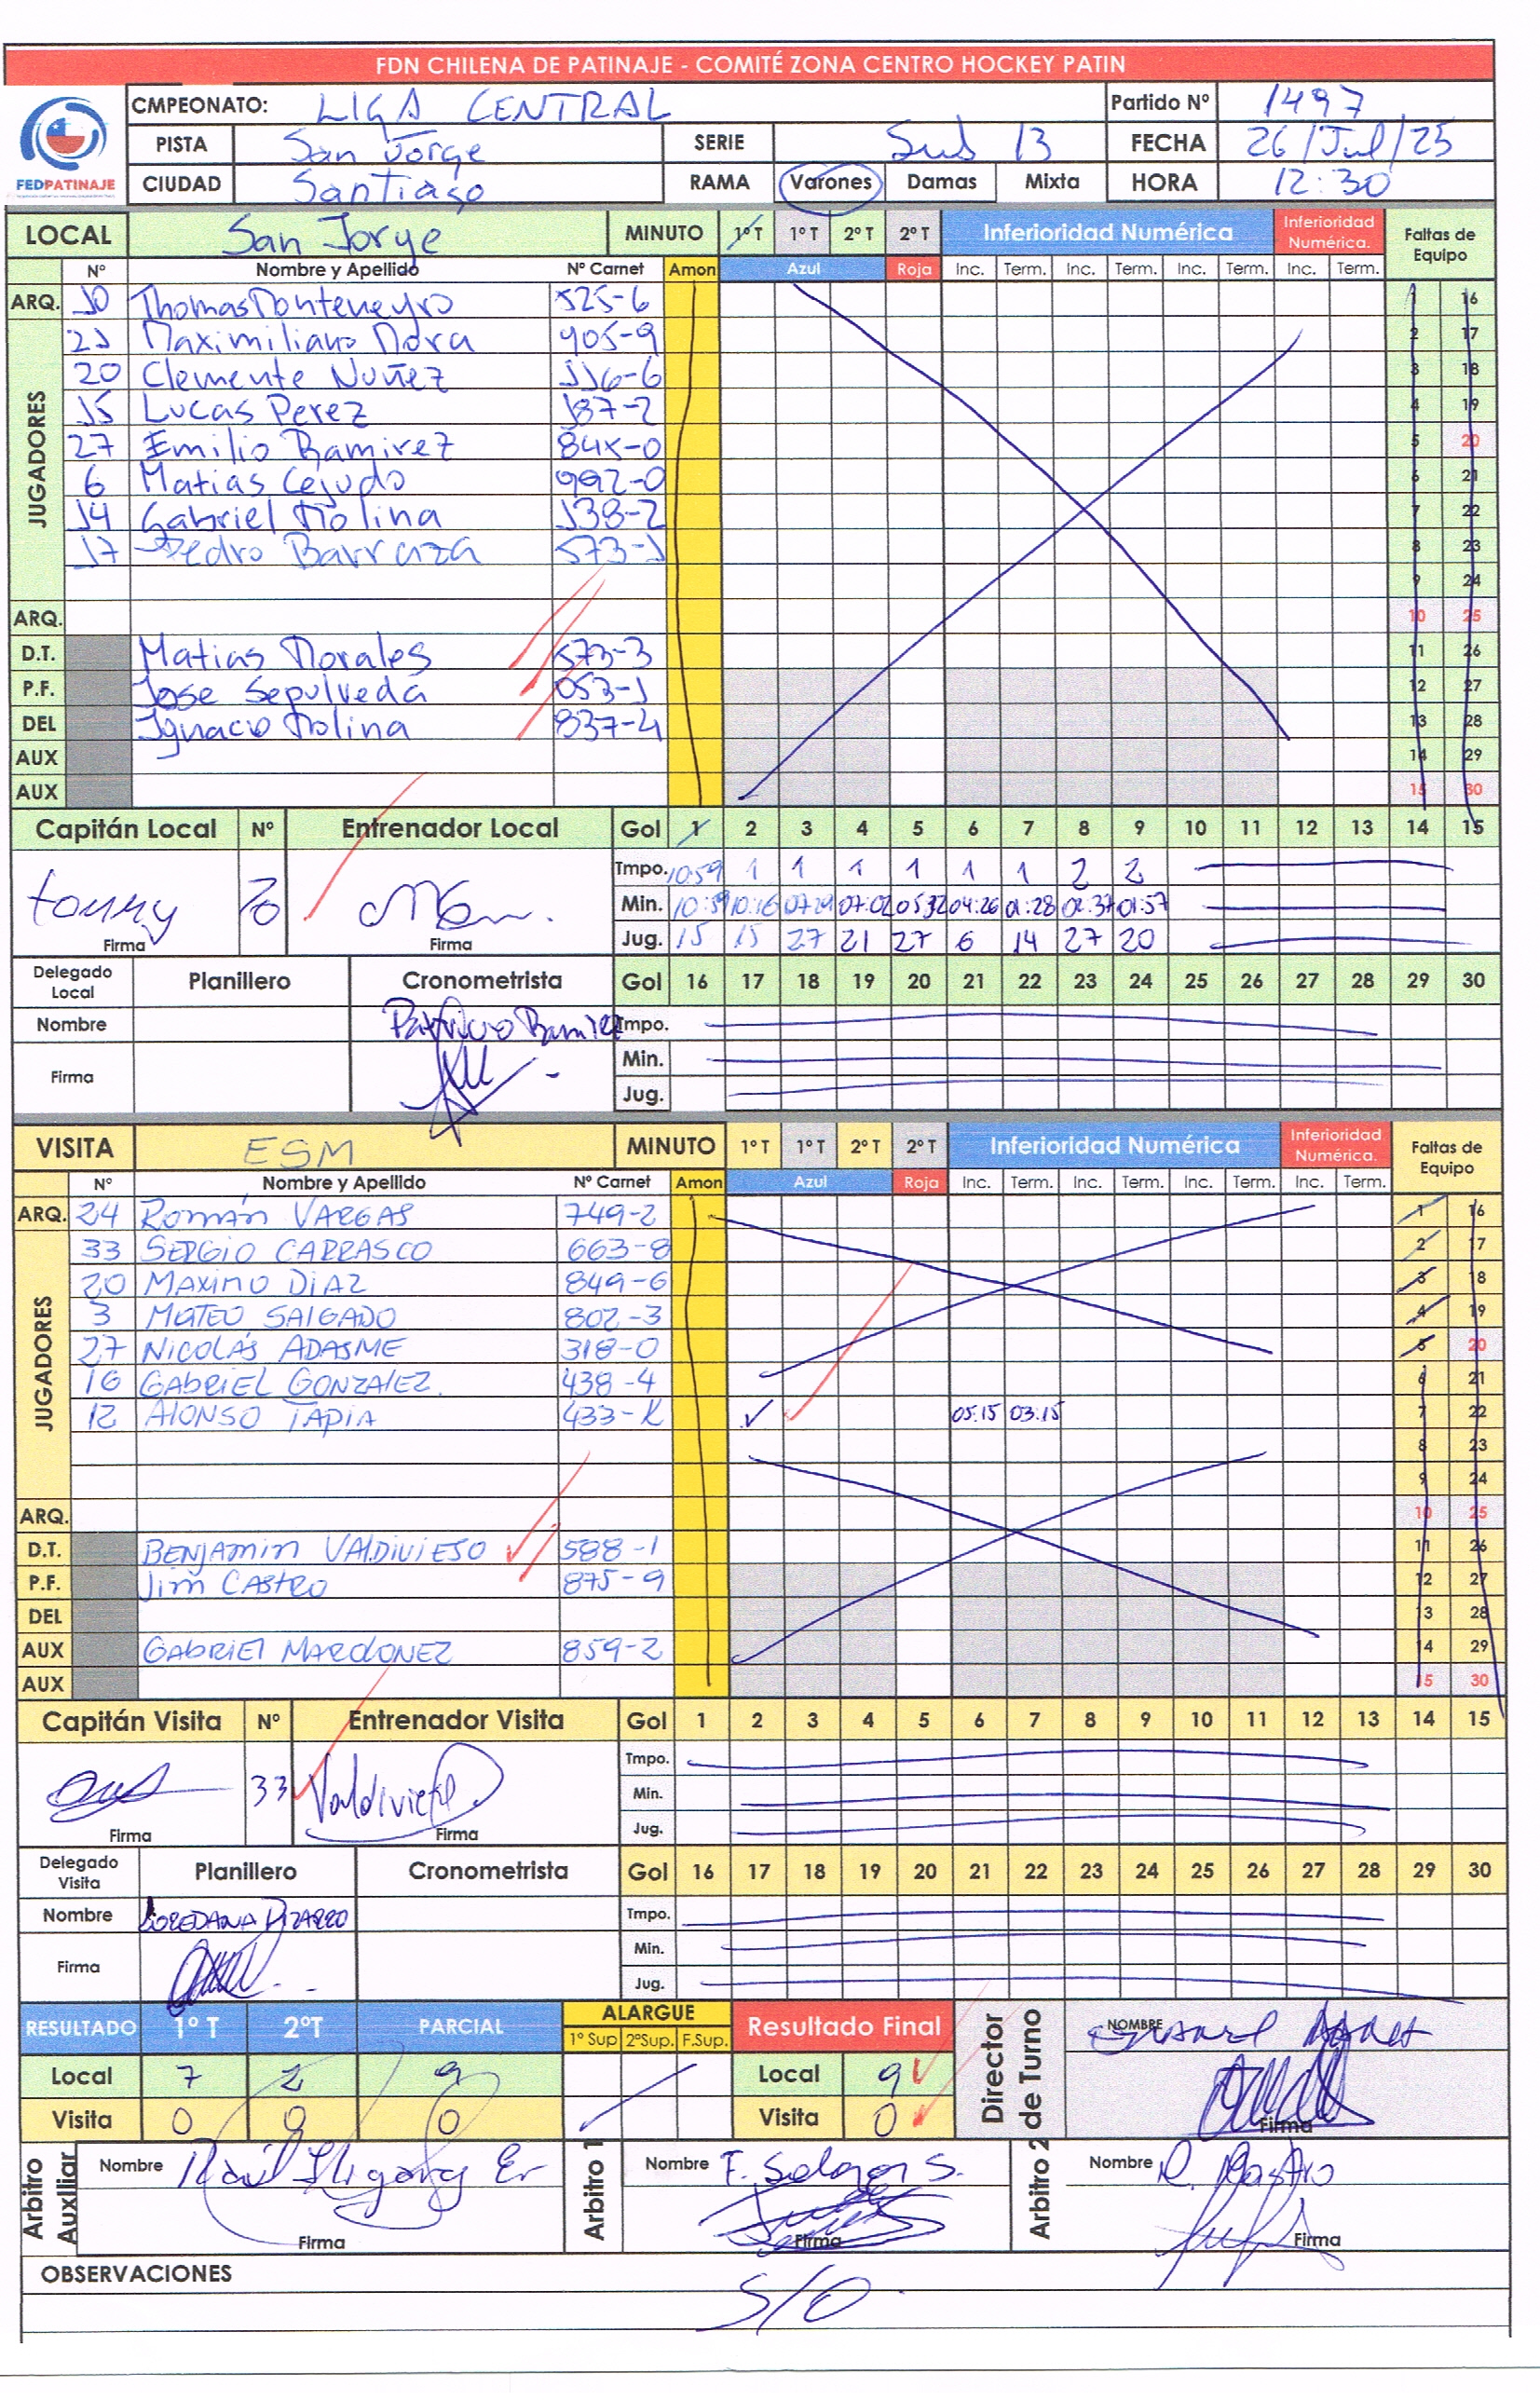 FDN CHILENA DE PATINAJE - COMITÉ ZONA CENTRO HOCKEY PATIN
FEDPATINAJE
CMPEONATO: LIGA CENTRAL Partido Nº 1497
PISTA San Jorge SERIE Sub 13 FECHA 26/Jul/25
CIUDAD Santiago RAMA Varones Damas Mixta HORA 12:30
LOCAL San Jorge MINUTO 1º T 1º T 2º T 2º T Inferioridad Numérica Inferioridad Numérica. Faltas de Equipo
Nº Nombre y Apellido Nº Carnet Amon Azul Roja Inc. Term. Inc. Term. Inc. Term. Inc. Term.
ARQ. 10 Thomas Montenegro 525-6 1 16
JUGADORES
21 Maximiliano Mora 905-9 2 17
20 Clemente Nuñez 116-6 3 18
15 Lucas Perez 187-2 4 19
27 Emilio Ramirez 84x-0 5 20
6 Matias Cejudo 992-0 6 21
14 Gabriel Molina 138-2 7 22
17 Pedro Barraza 573-1 8 23
9 24
ARQ. 10 25
D.T. Matias Morales 573-3 11 26
P.F. Jose Sepulveda 053-1 12 27
DEL Ignacio Molina 837-4 13 28
AUX 14 29
AUX 15 30
Capitán Local Nº Entrenador Local Gol 1 2 3 4 5 6 7 8 9 10 11 12 13 14 15
Tmpo. 10:59 1 1 1 1 1 1 2 2
tommy Min. 10:59 10:16 07:02 05:32 04:26 01:28 01:57
Firma Firma Jug. 15 15 27 21 27 6 14 27 20
Delegado Local Planillero Cronometrista Gol 16 17 18 19 20 21 22 23 24 25 26 27 28 29 30
Nombre Patricio Ramirez Tmpo.
Firma Min.
Jug.
VISITA ESM MINUTO 1º T 1º T 2º T 2º T Inferioridad Numérica Inferioridad Numérica. Faltas de Equipo
Nº Nombre y Apellido Nº Carnet Amon Azul Roja Inc. Term. Inc. Term. Inc. Term. Inc. Term.
ARQ. 24 Román VARGAS 749-2 1 16
JUGADORES
33 SERGIO CARRASCO 663-8 2 17
20 MAXIMO DIAZ 849-6 3 18
3 MATEO SALGADO 802-3 4 19
27 NICOLÁS ADASME 318-0 5 20
16 GABRIEL GONZALEZ. 438-4 6 21
12 ALONSO TAPIA 433-K ✓ 05:15 03:15 7 22
8 23
9 24
ARQ. 10 25
D.T. BENJAMIN VALDIVIESO 588-1 11 26
P.F. Jim CASTRO 875-9 12 27
DEL 13 28
AUX GABRIEL MARDONEZ 859-2 14 29
AUX 15 30
Capitán Visita Nº Entrenador Visita Gol 1 2 3 4 5 6 7 8 9 10 11 12 13 14 15
Tmpo.
33 Min.
Firma Firma Jug.
Delegado Visita Planillero Cronometrista Gol 16 17 18 19 20 21 22 23 24 25 26 27 28 29 30
Nombre LOREDANA PIZARRO Tmpo.
Firma Min.
Jug.
RESULTADO 1º T 2ºT PARCIAL ALARGUE 1º Sup 2ºSup. F.Sup. Resultado Final Director de Turno NOMBRE
Local 7 2 9 Local 9
Visita 0 0 0 Visita 0 Firma
Arbitro Auxiliar Nombre Arbitro 1 Nombre F. Salazar S. Arbitro 2 Nombre R. Castro
Firma Firma Firma
OBSERVACIONES
S/O